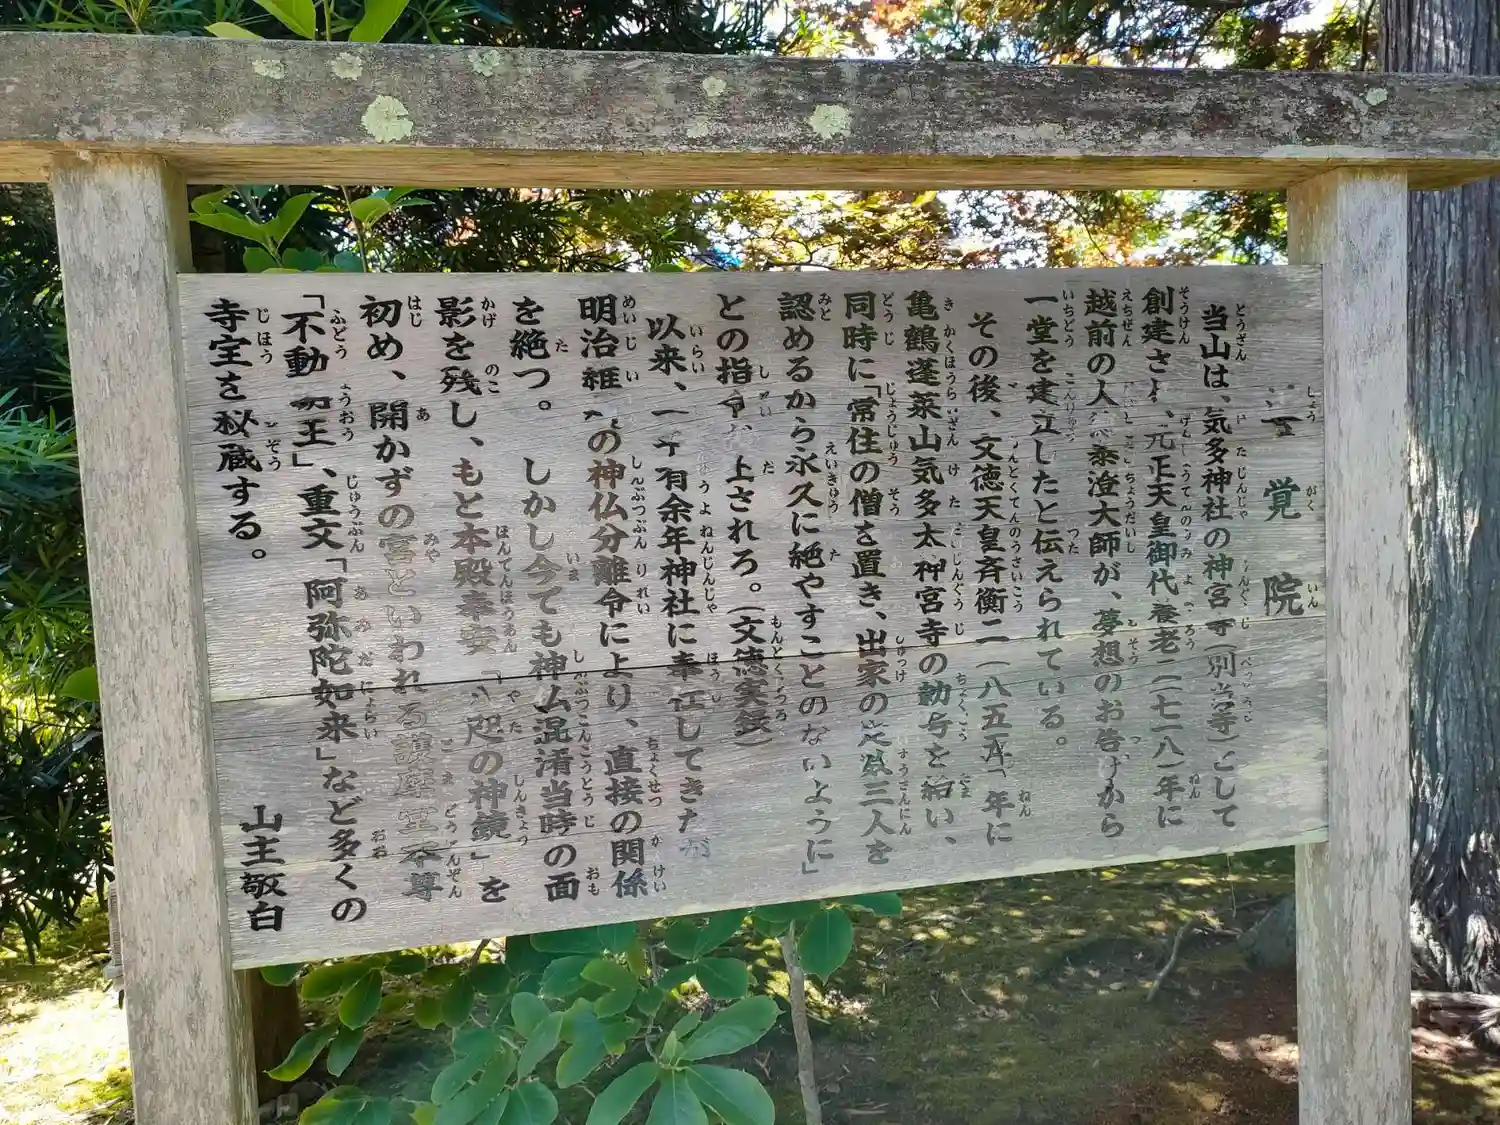 正覚院
当山は、気多神社の神宮寺(別当寺)として
創建され、元正天皇御代養老二(七一八)年に
越前の人 泰澄大師が、夢想のお告げから
一堂を建立したと伝えられている。
その後、文徳天皇斉衡二(八五五)年に
亀鶴蓬莱山気多太神宮寺の勅号を給い、
同時に「常住の僧を置き、出家の 三人を
認めるから永久に絶やすことのないように」
との指令が 上される。(文徳実録)
以来、一千有余年神社に奉仕してきたが
明治維 の神仏分離令により、直接の関係
を絶つ。しかし今でも神仏混淆当時の面
影を残し、もと本殿奉安「八咫の神鏡」を
初め、開かずの宮といわれる護摩堂本尊
「不動明王」、重文「阿弥陀如来」など多くの
寺宝を秘蔵する。
山主敬白